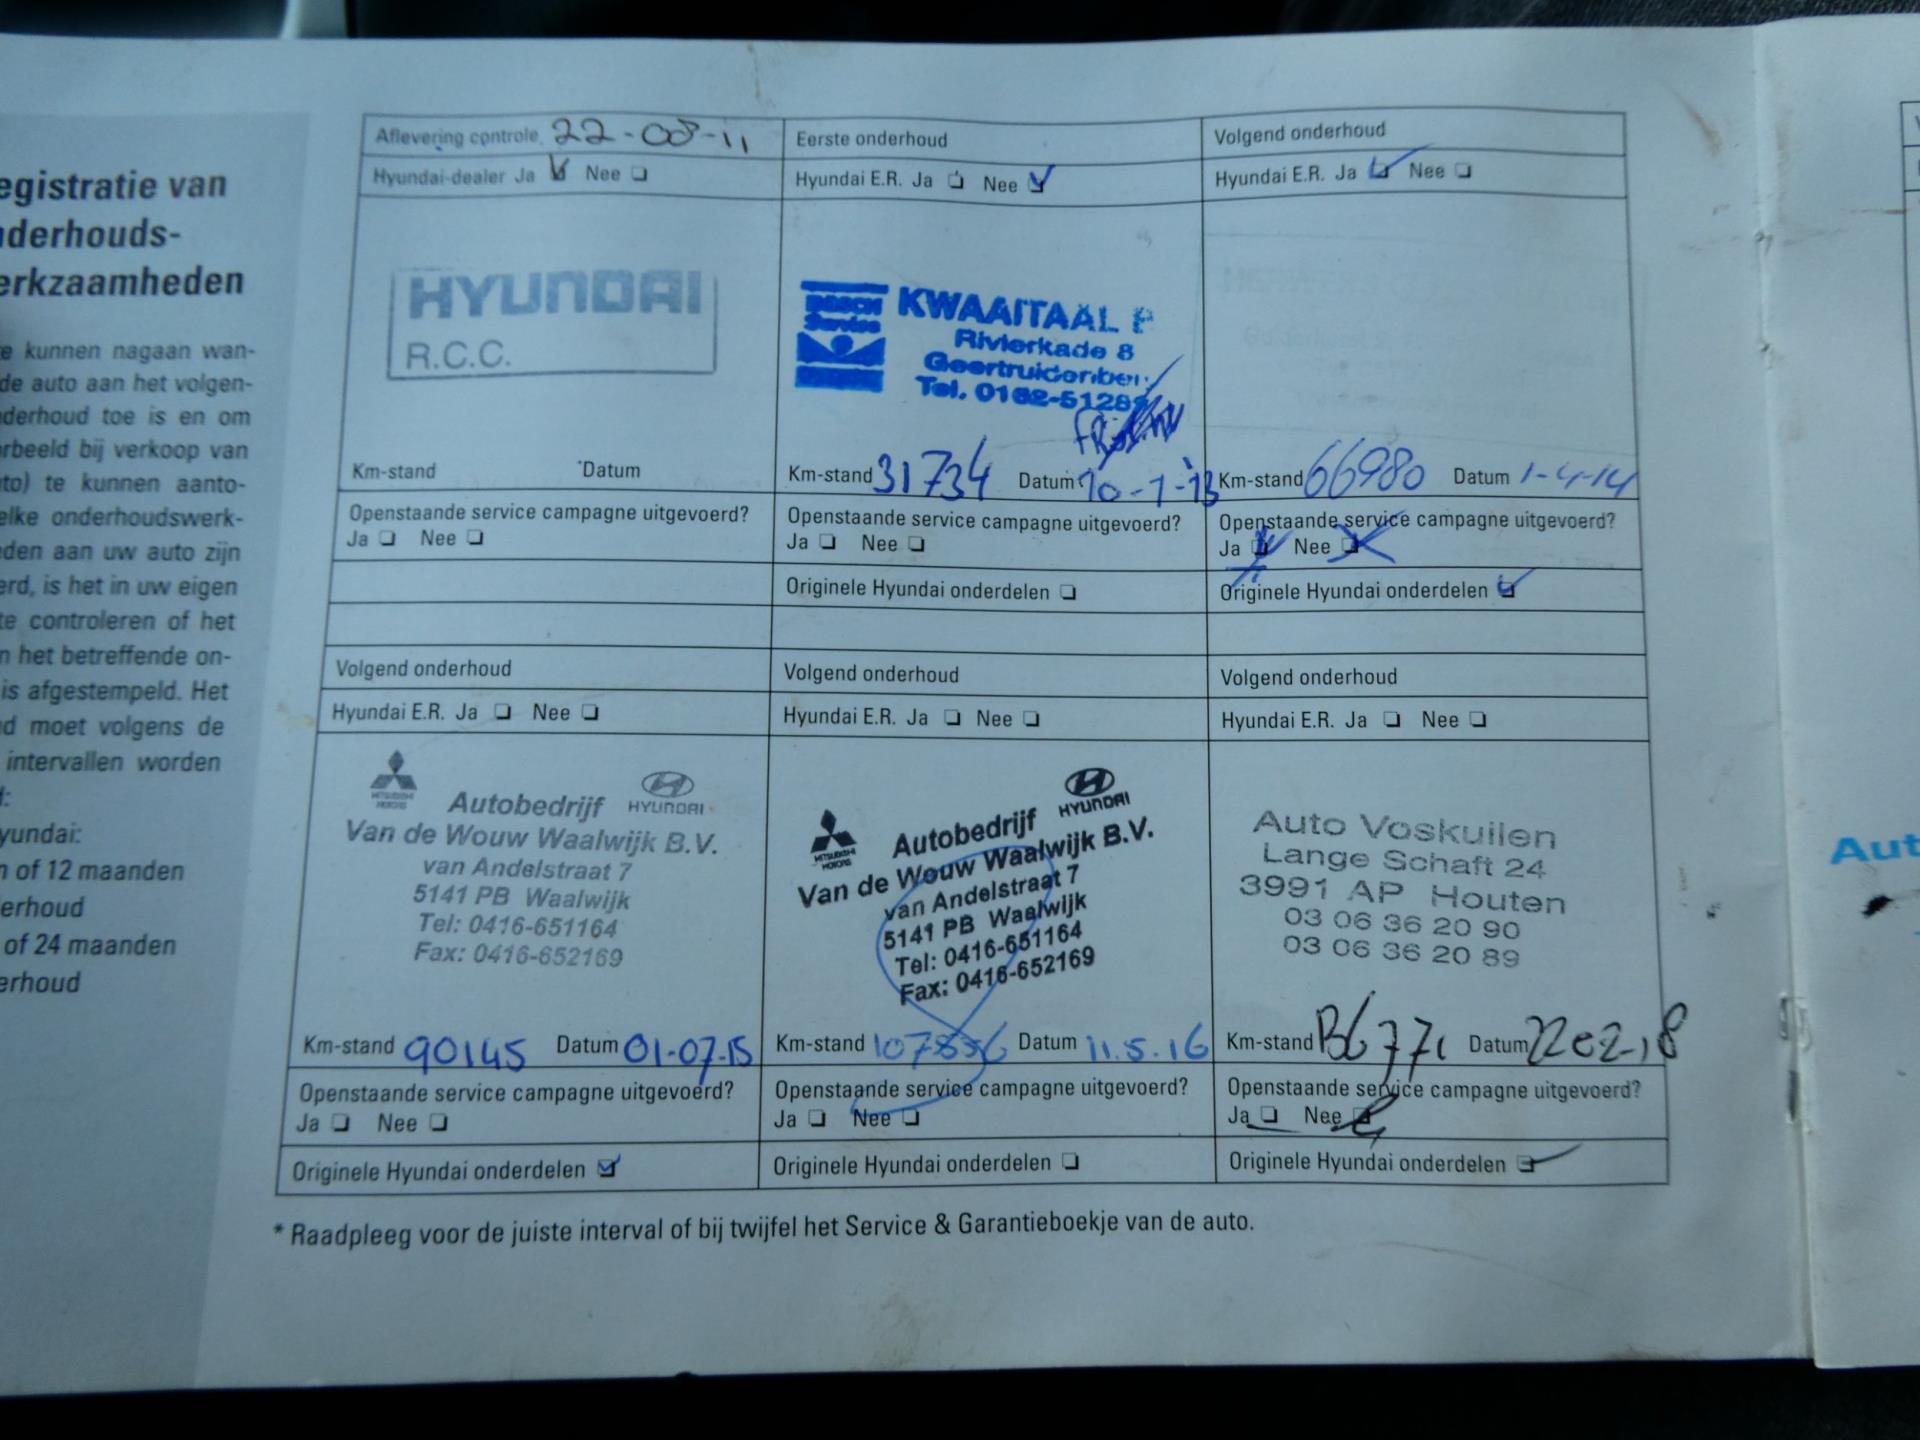 egistratie van
nderhouds-
erkzaamheden
e kunnen nagaan wan-
de auto aan het volgen-
derhoud toe is en om
rbeeld bij verkoop van
to) te kunnen aanto-
elke onderhoudswerk-
den aan uw auto zijn
erd, is het in uw eigen
te controleren of het
n het betreffende on-
is afgestempeld. Het
d moet volgens de
intervallen worden
d:
yundai:
n of 12 maanden
erhoud
of 24 maanden
erhoud
Aflevering controle 22-08-11
Hyundai-dealer Ja Nee
HYUNDAI
R.C.C.
Km-stand Datum
Openstaande service campagne uitgevoerd?
Ja Nee
Eerste onderhoud
Hyundai E.R. Ja Nee
BOSCH
Service
KWAAITAAL
Rivierkade 8
Geertruidenber
Tel. 0162-5128
Km-stand 31734 Datum 10-1-13
Openstaande service campagne uitgevoerd?
Ja Nee
Originele Hyundai onderdelen
Volgend onderhoud
Hyundai E.R. Ja Nee
Km-stand 66980 Datum 1-4-14
Openstaande service campagne uitgevoerd?
Ja Nee
Originele Hyundai onderdelen
Volgend onderhoud
Hyundai E.R. Ja Nee
MITSUBISHI
MOTORS
HYUNDAI
Autobedrijf
Van de Wouw Waalwijk B.V.
van Andelstraat 7
5141 PB Waalwijk
Tel: 0416-651164
Fax: 0416-652169
Km-stand 90145 Datum 01-07-15
Openstaande service campagne uitgevoerd?
Ja Nee
Originele Hyundai onderdelen
Volgend onderhoud
Hyundai E.R. Ja Nee
MITSUBISHI
MOTORS
HYUNDAI
Autobedrijf
Van de Wouw Waalwijk B.V.
van Andelstraat 7
5141 PB Waalwijk
Tel: 0416-651164
Fax: 0416-652169
Km-stand 107856 Datum 11.5.16
Openstaande service campagne uitgevoerd?
Ja Nee
Originele Hyundai onderdelen
Volgend onderhoud
Hyundai E.R. Ja Nee
Auto Voskuilen
Lange Schaft 24
3991 AP Houten
03 06 36 20 90
03 06 36 20 89
Km-stand Datum 22 02-18
Openstaande service campagne uitgevoerd?
Ja Nee
Originele Hyundai onderdelen
* Raadpleeg voor de juiste interval of bij twijfel het Service & Garantieboekje van de auto.
Aut